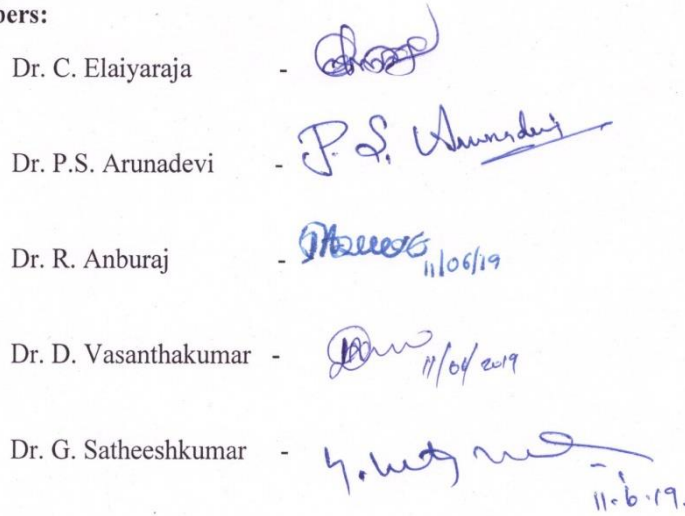 bers:
Dr. C. Elaiyaraja -
Dr. P.S. Arunadevi - P. S. Arunadevi
Dr. R. Anburaj - 11/06/19
Dr. D. Vasanthakumar - 11/06/2019
Dr. G. Satheeshkumar -
11.6.19.